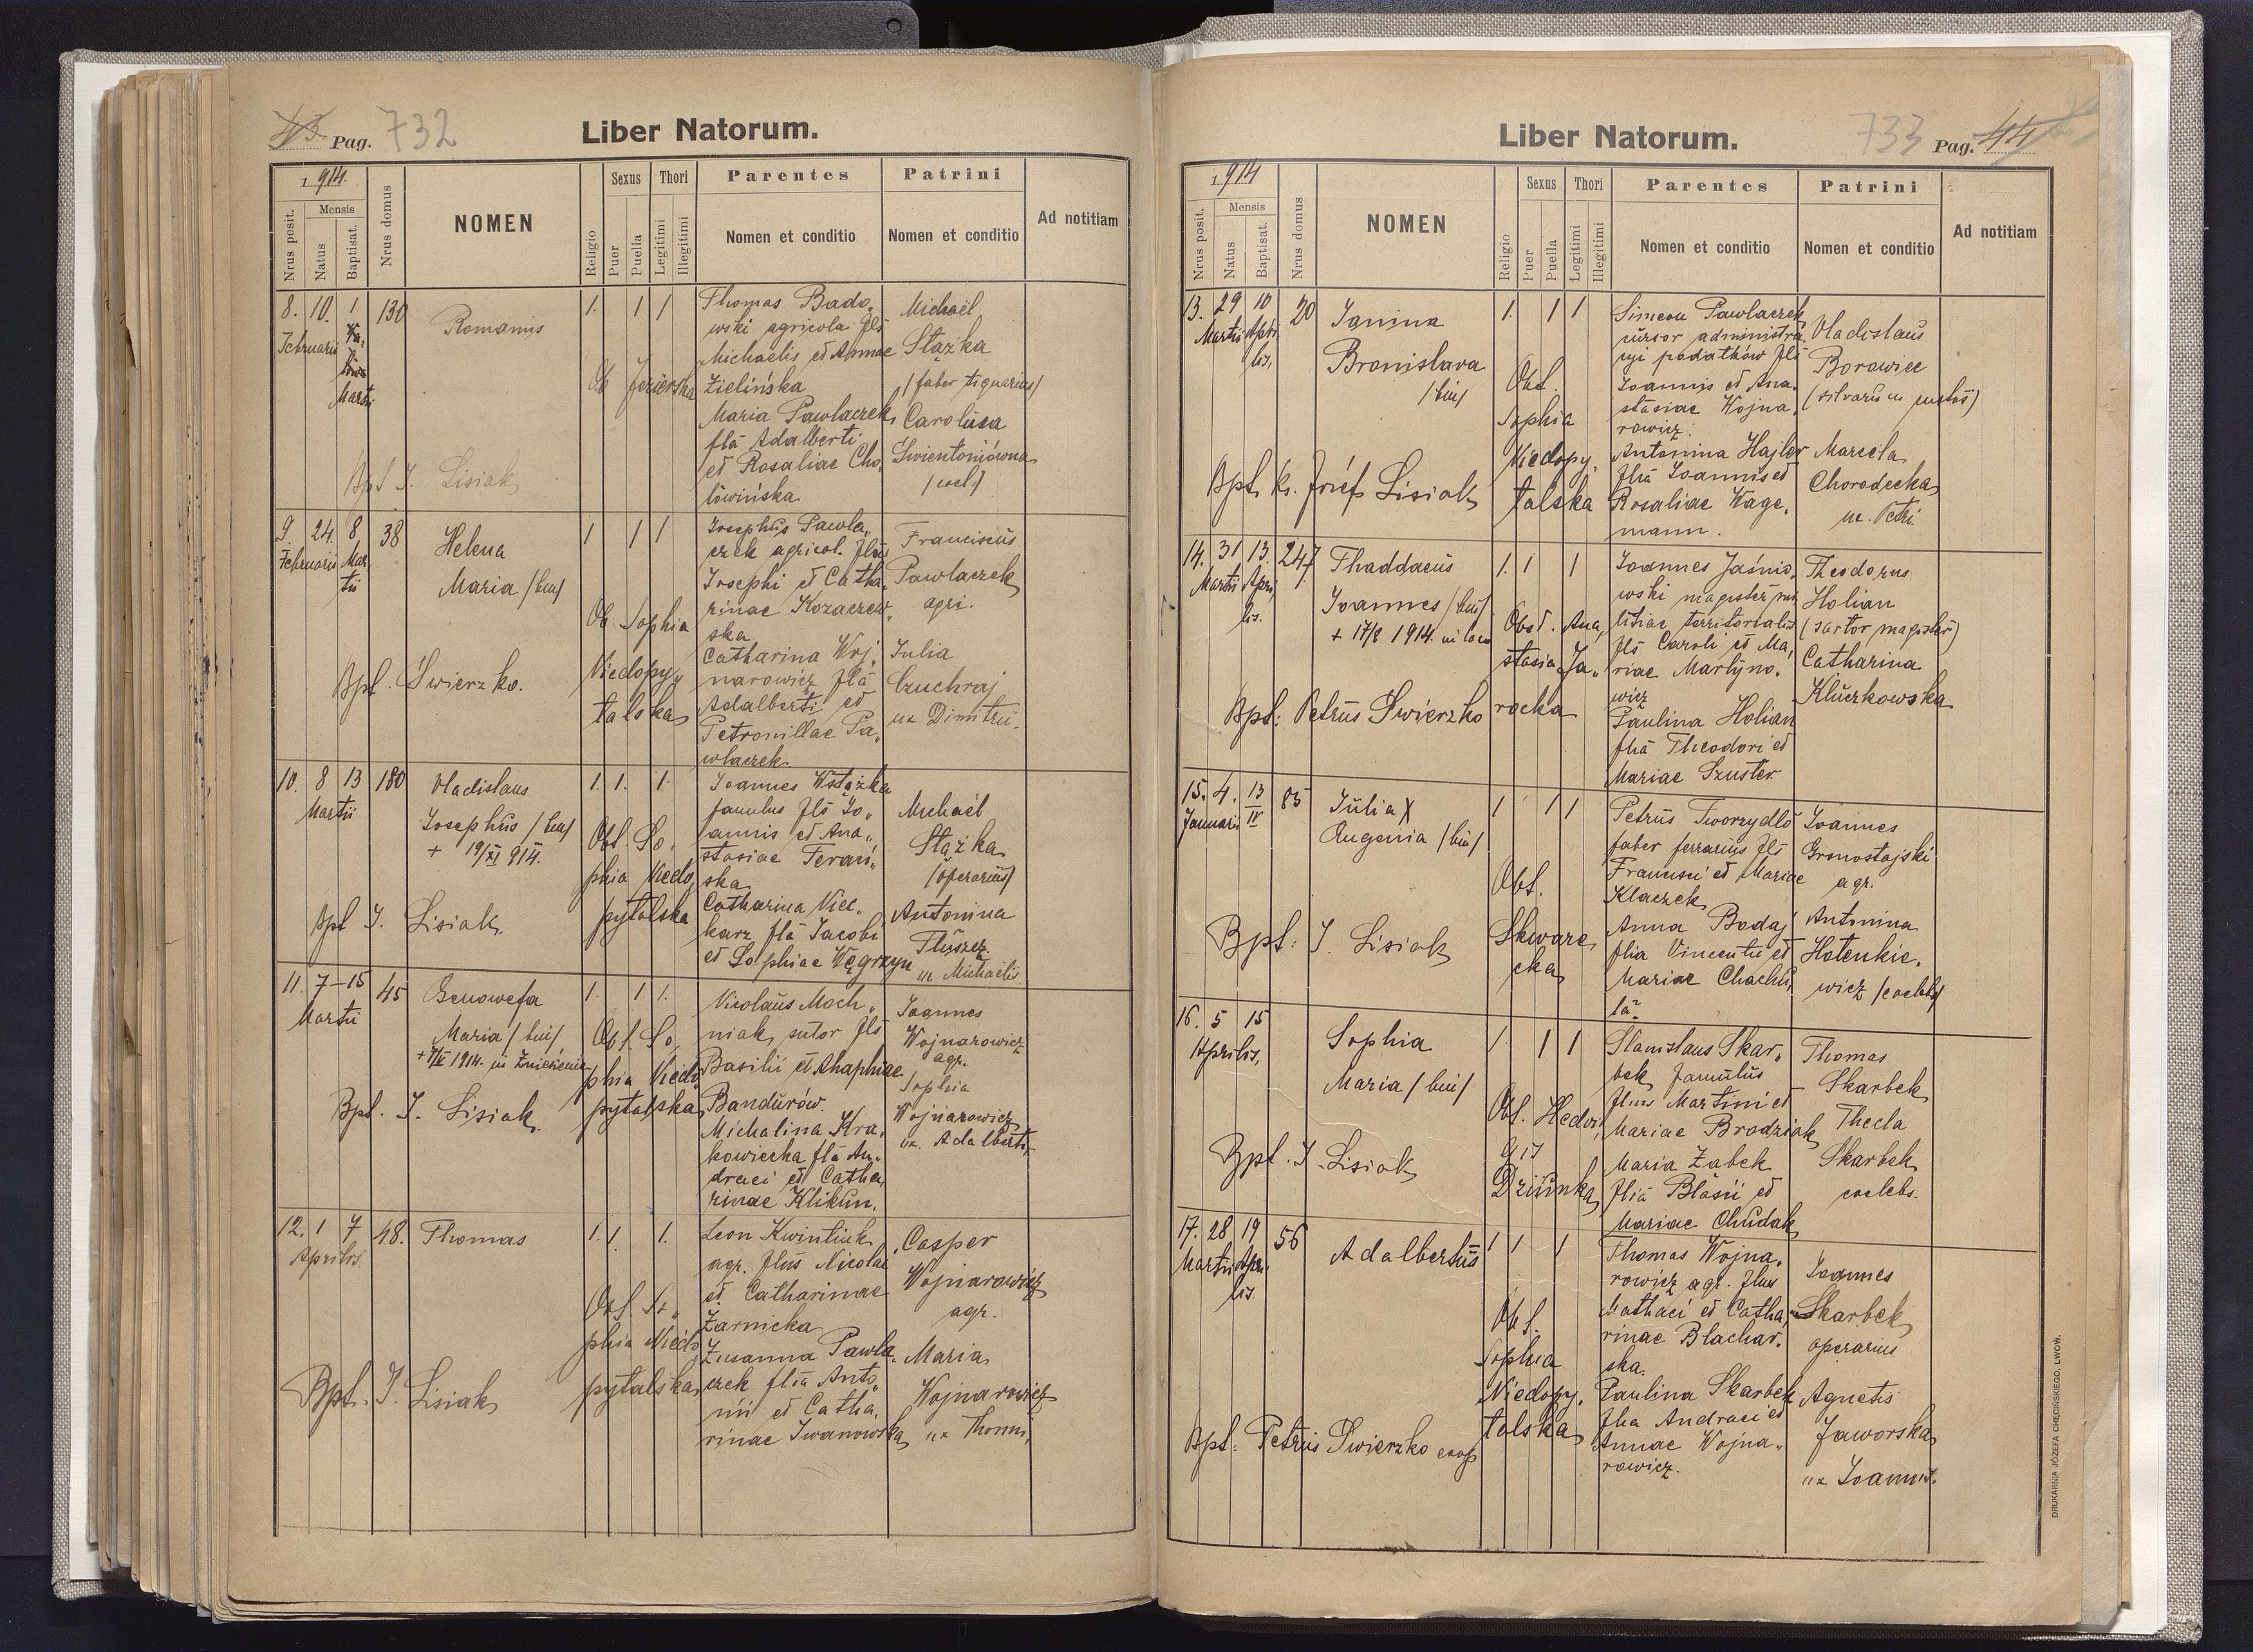 43 Pag. 732
Liber Natorum.
1914.
Nrus posit.
Mensis
Natus
Baptisat.
Nrus domus
NOMEN
Religio
Sexus
Puer
Puella
Thori
Legitimi
Illegitimi
Parentes
Nomen et conditio
Patrini
Nomen et conditio
Ad notitiam
8. 10. 1 130
Februarii
Martii
Romanus
1. 1 1
Ob Jezierska
Thomas Bado„
wski agricola fls
Michaelis et Annae
Zielińska
Maria Pawlaczek
fla Adalberti
et Rosaliae Cho„
łowińska
Michaël
Stążka
/faber tignarius/
Carolusa
Świentoniówna
/coel./
Bpt J. Lisiak
9. 24. 8 38
Februarii Mar
tii
Helena
Maria /bin/
1 1 1
Ob. Sophia
Niedopy„
talska
Josephus Pawla„
czek agricol. fls
Josephi et Catha„
rinae Kozaczew„
ska
Catharina Woj„
narowicz fla
Adalberti et
Petronillae Pa„
wlaczek
Franciscus
Pawlaczek
agri.
Julia
Czuchraj
ux Dimitrii
Bpt. Świerzko.
10. 8 13 180
Martii
Vladislaus
Josephus /bin/
+ 19/XI 914.
1. 1. 1.
Obst. So„
phia Niedo
pytalska
Joannes Wstążka
famulus fls Jo„
annis et Ana„
stasiae Ferań„
ska
Catharina Niec„
karz fla Jacobi
et Sophiae Węgrzyn
Michaël
Stążka
/operarius/
Antonina
Tłuszcz
ux Michaelis
Bpt J. Lisiak
11. 7-15 45
Martii
Genowefa
Maria /bin/
1. 1 1.
Obs. So„
phia Niedo
pytalska
Nicolaus Moch„
niak, sutor fls
Basilii et Ahaphiae
Bandurów.
Michalina Kra„
kowiecka fla An„
dreae et Catha„
rinae Klikun.
Joannes
Wojnarowicz
agr.
Sophia
Wojnarowicz
ux. Adalberti
Bpt. J. Lisiak
12. 1 7 48.
Aprilis.
Thomas
1. 1 1.
Obst. So„
phia Niedo
pytalska
Leon Kwintiuk
agr. flus Nicolai
et Catharinae
Żarnicka
Zusanna Pawla„
czek flia Anto„
nii et Catha„
rinae Iwanowska
Casper
Wojnarowicz
agr.
Maria
Wojnarowicz
ux Thomi,
Bpt. J. Lisiak
Liber Natorum.
733 Pag. 44
1914
Nrus posit.
Mensis
Natus
Baptisat.
Nrus domus
NOMEN
Religio
Sexus
Puer
Puella
Thori
Legitimi
Illegitimi
Parentes
Nomen et conditio
Patrini
Nomen et conditio
Ad notitiam
13. 29 10 20
Martii Apri
lis,
Janina
Bronislava
/bin/
1. 1 1
Obst.
Sophia
Niedopy„
talska
Simeon Pawlaczek
cursor administra„
cyi podatków fls
Joannis et Ana„
stasiae Wojna„
rowicz.
Antonina Hajler
flia Joannis et
Rosaliae Wage„
mann.
Vladislaus
Borowiec
(silvarum custos)
Marcela
Chorodecka
ux. Petri.
Bpt. Ks. Józef Lisiak
14. 31 13. 247
Martii Apri„
lis.
Thaddaeus
Joannes /bin/
+ 17/8 1914. in loco
1. 1 1
Obst. Ana„
stasia Ja„
rocka
Joannes Jaśnio„
wski magister mi„
litiae territorialis
fls Caroli et Ma„
riae Martyno„
wicz
Paulina Holian
flia Theodori et
Mariae Szuster
Theodorus
Holian
(sartor magister)
Catharina
Kluczkowska
Bpt: Petrus Świerzko
15. 4. 13 83
Januarii IV
Julia X
Augenia /bin/
1 1 1
Obst.
Skware„
cka
Petrus Tworzydło
faber ferrarius fls
Francisci et Mariae
Klaczek
Anna Badaj
flia Vincentii et
Mariae Chachu„
la.
Joannes
Gronostajski
agr.
Antonina
Hotenkie„
wicz /coelebs/
Bpt: J. Lisiak
16. 5 15
Aprilis,
Sophia
Maria /bin/
1. 1 1
Obst. Hedvi„
gis
Dziunka
Stanislaus Skar„
bek famulus
flius Martini et
Mariae Brodziak
Maria Żabek
flia Blasii et
Mariae Chudak
Thomas
Skarbek
Thecla
Skarbek
coelebs.
Bpt. J. Lisiak
17. 28 19 56
Martii Apri
lis.
Adalbertus
1 1 1
Obst.
Sophia
Niedopy„
talska
Thomas Wojna„
rowicz agr. flius
Mathaei et Catha„
rinae Blachar„
ska.
Paulina Skarbek
flia Andreae et
Annae Wojna„
rowicz.
Joannes
Skarbek
operarius
Agnetis
Jaworska
ux Joannis.
Bpt: Petrus Świerzko coop
DRUKARNIA JÓZEFA CHĘCIŃSKIEGO, LWÓW.